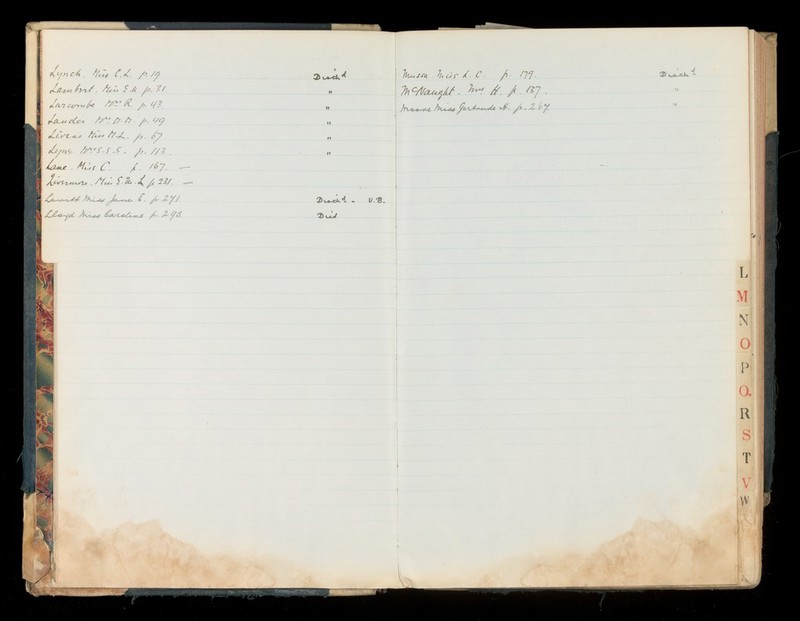 Lynch. Miss C. L. p. 19 Disch'd
Lambert. Miss E. M. p. 31. "
Larcombe Mrs R. p. 43. "
Lauder Mrs M. M. p. 49 "
Livens Miss M. L. p. 67 "
Lyne Mrs S. S. S. p. 113. "
Lane. Miss C. p. 167. —
Livermore. Miss E. M. L p. 231. —
Leavitt Miss Jane E. p. 271. Disch'd - U.B.
Lloyd Miss Caroline p. 293. Died
Miss L. C. p. 179. Disch'd
McNaught. Mrs H. p. 187. "
Moore Miss Gertrude A. p. 267. "
L
M
N
O
P
Q.
R
S
T
V
W